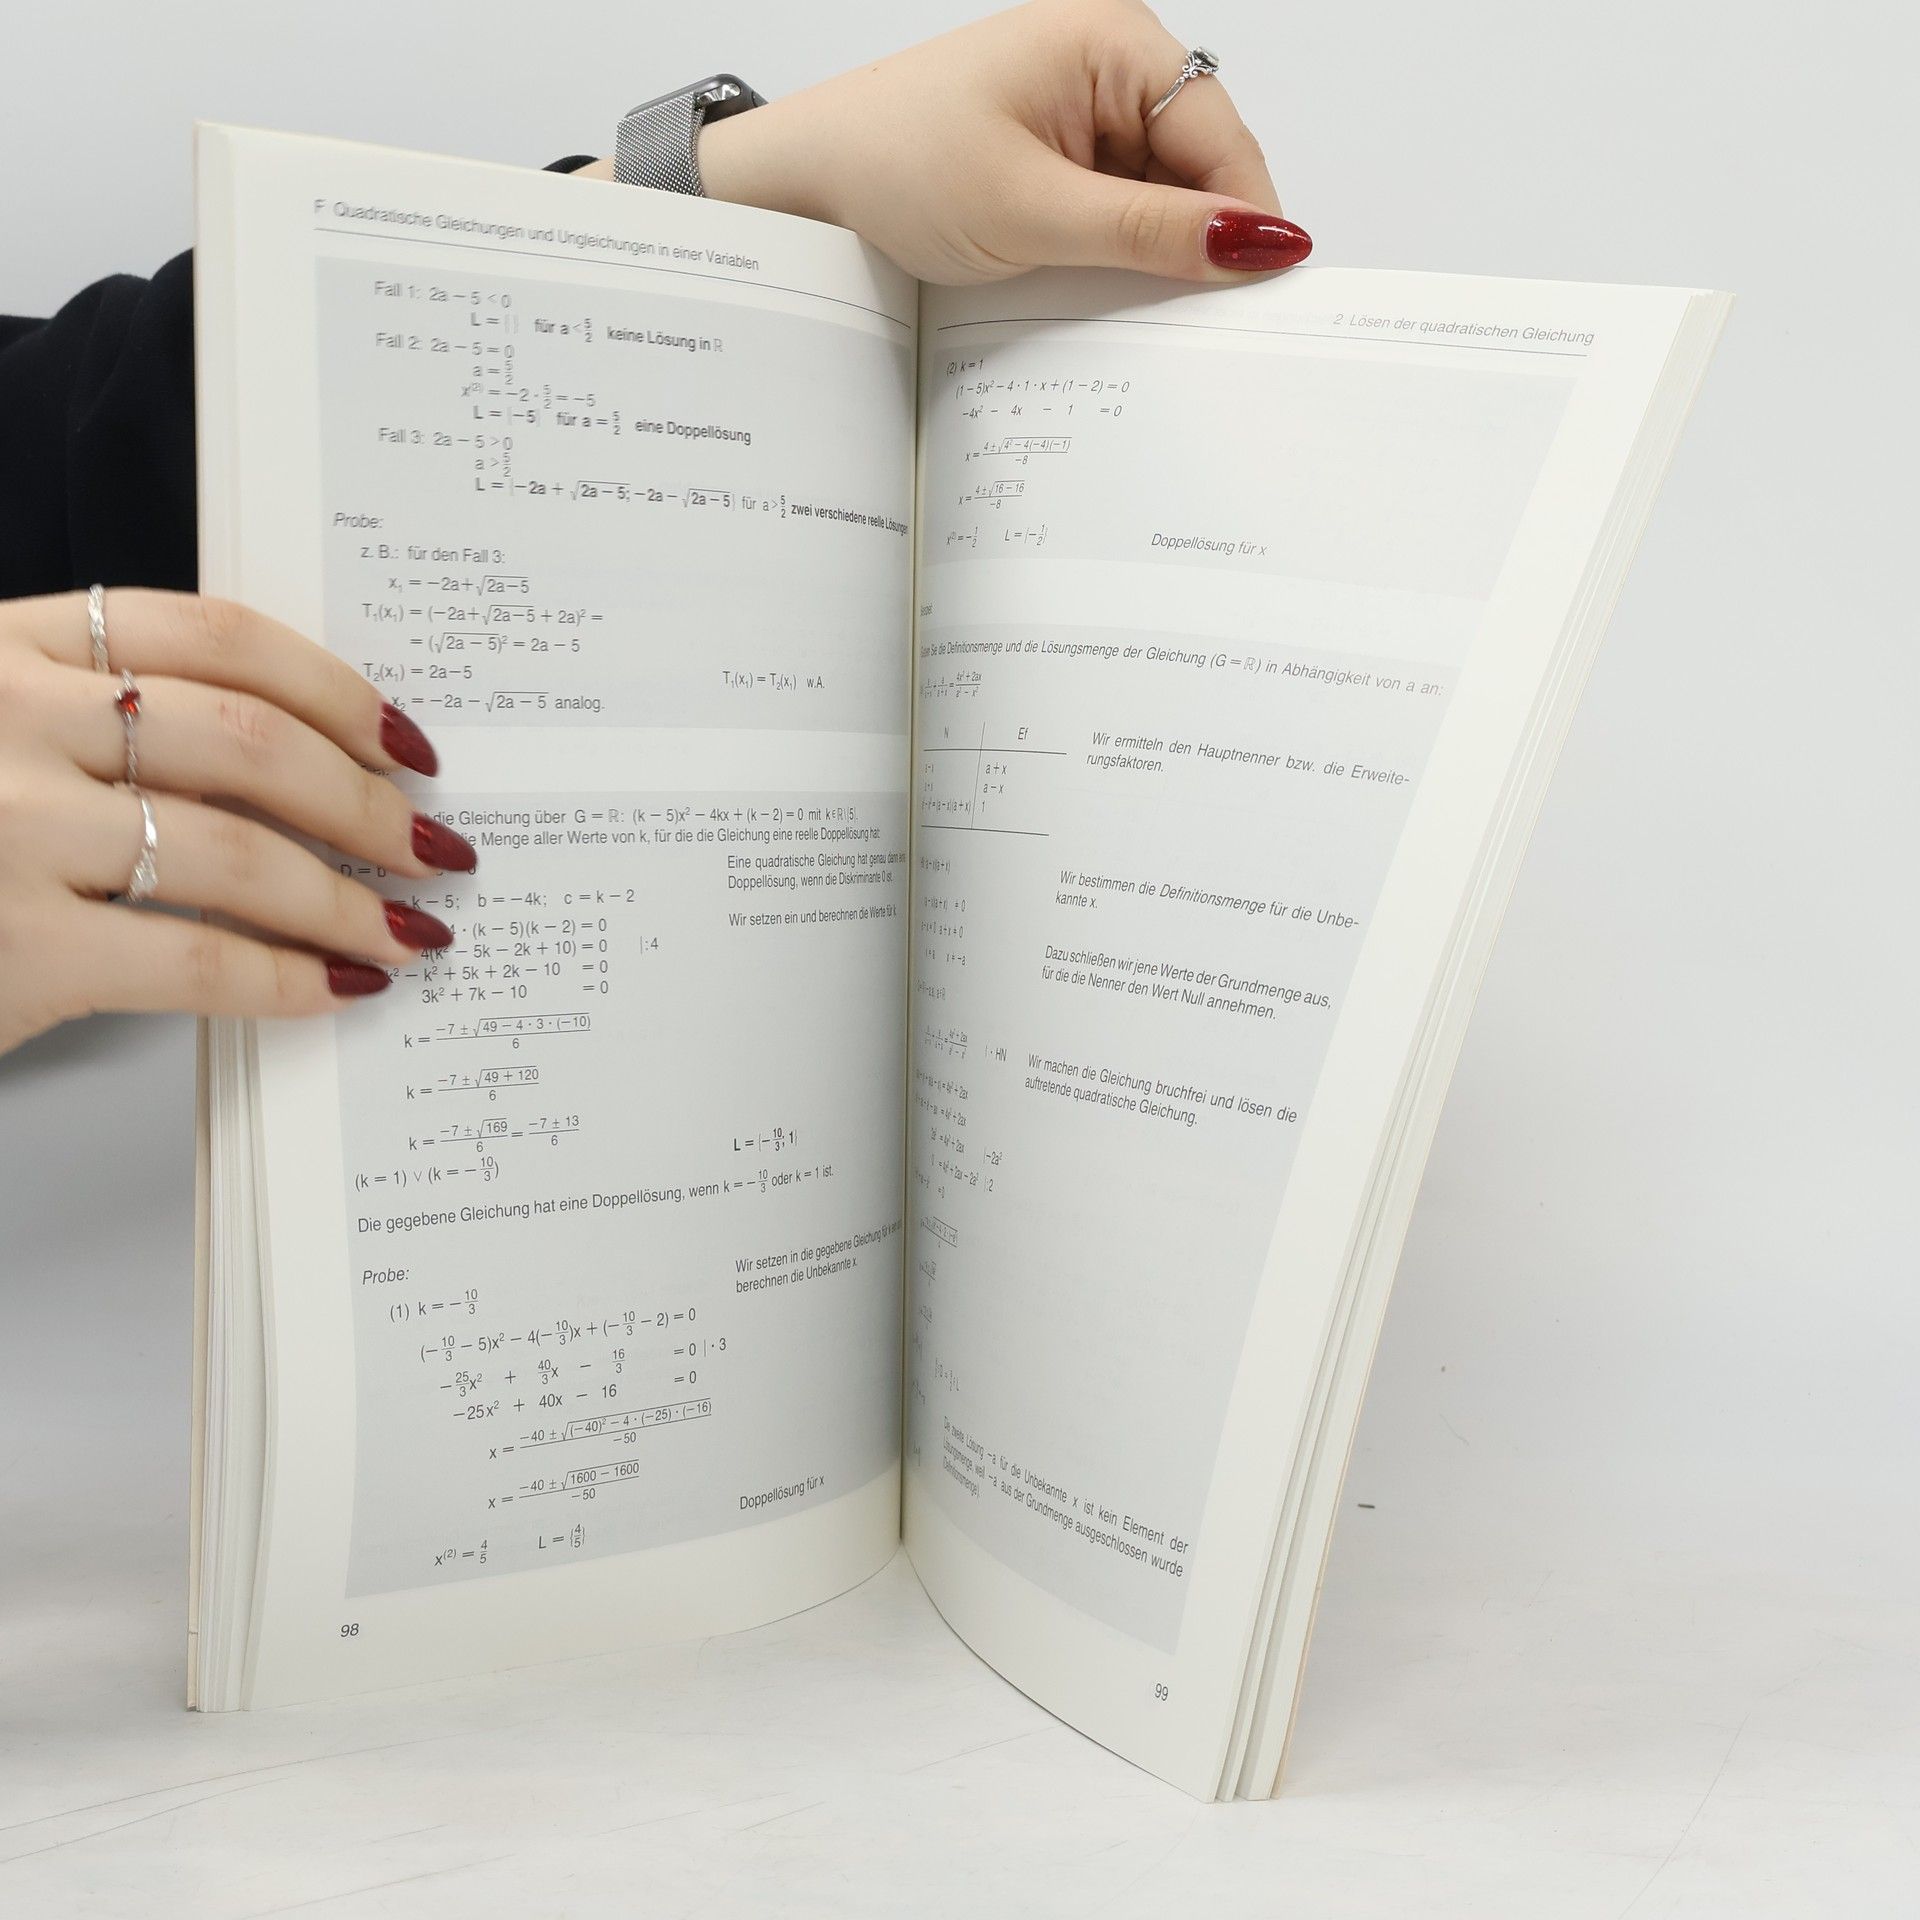 F Quadratische Gleichungen und Ungleichungen in einer Variablen
Fall 1: 2a − 5 < 0
L = { } für a < 5/2 keine Lösung in ℝ
Fall 2: 2a − 5 = 0
a = 5/2
x⁽²⁾ = −2 · 5/2 = −5
L = {−5} für a = 5/2 eine Doppellösung
Fall 3: 2a − 5 > 0
a > 5/2
L = {−2a + √(2a − 5); −2a − √(2a − 5)} für a > 5/2 zwei verschiedene reelle Lösungen
Probe:
z. B.: für den Fall 3:
x₁ = −2a+√(2a−5)
T₁(x₁) = (−2a+√(2a−5) + 2a)² =
= (√(2a − 5))² = 2a − 5
T₂(x₁) = 2a−5 T₁(x₁) = T₂(x₁) w.A.
x₂ = −2a − √(2a − 5) analog.
die Gleichung über G = ℝ: (k − 5)x² − 4kx + (k − 2) = 0 mit k∈ℝ\{5}.
die Menge aller Werte von k, für die die Gleichung eine reelle Doppellösung hat:
Eine quadratische Gleichung hat genau dann eine
Doppellösung, wenn die Diskriminante 0 ist.
k − 5; b = −4k; c = k − 2
Wir setzen ein und berechnen die Werte für k
· (k − 5)(k − 2) = 0
4(k² − 5k − 2k + 10) = 0 |:4
− k² + 5k + 2k − 10 = 0
3k² + 7k − 10 = 0
k = (−7 ± √(49 − 4 · 3 · (−10)))/6
k = (−7 ± √(49 + 120))/6
k = (−7 ± √169)/6 = (−7 ± 13)/6
L = {−10/3; 1}
(k = 1) ∨ (k = −10/3)
Die gegebene Gleichung hat eine Doppellösung, wenn k = −10/3 oder k = 1 ist.
Probe:
Wir setzen in die gegebene Gleichung für k ein und
berechnen die Unbekannte x.
(1) k = −10/3
(−10/3 − 5)x² − 4(−10/3)x + (−10/3 − 2) = 0
−25/3x² + 40/3x − 16/3 = 0 | · 3
−25x² + 40x − 16 = 0
x = (−40 ± √((−40)² − 4 · (−25) · (−16)))/−50
x = (−40 ± √(1600 − 1600))/−50
Doppellösung für x
x⁽²⁾ = 4/5 L = {4/5}
98
2 Lösen der quadratischen Gleichung
(2) k = 1
(1 − 5)x² − 4 · 1 · x + (1 − 2) = 0
−4x² − 4x − 1 = 0
x = (4 ± √(4² − 4(−4)(−1)))/−8
x = (4 ± √(16 − 16))/−8
x⁽²⁾ = −1/2 L = {−1/2} Doppellösung für x
Sie die Definitionsmenge und die Lösungsmenge der Gleichung (G = ℝ) in Abhängigkeit von a an:
N Ef
a + x
a − x
1
Wir ermitteln den Hauptnenner bzw. die Erweite-
rungsfaktoren.
Wir bestimmen die Definitionsmenge für die Unbe-
kannte x.
Dazu schließen wir jene Werte der Grundmenge aus,
für die die Nenner den Wert Null annehmen.
| · HN
Wir machen die Gleichung bruchfrei und lösen die
auftretende quadratische Gleichung.
= 4x² + 2ax
= 4x² + 2ax
2a² = 4x² + 2ax |−2a²
0 = 4x² + 2ax − 2a² |:2
= 0
Die zweite Lösung −a für die Unbekannte x ist kein Element der
Lösungsmenge, weil −a aus der Grundmenge ausgeschlossen wurde
99